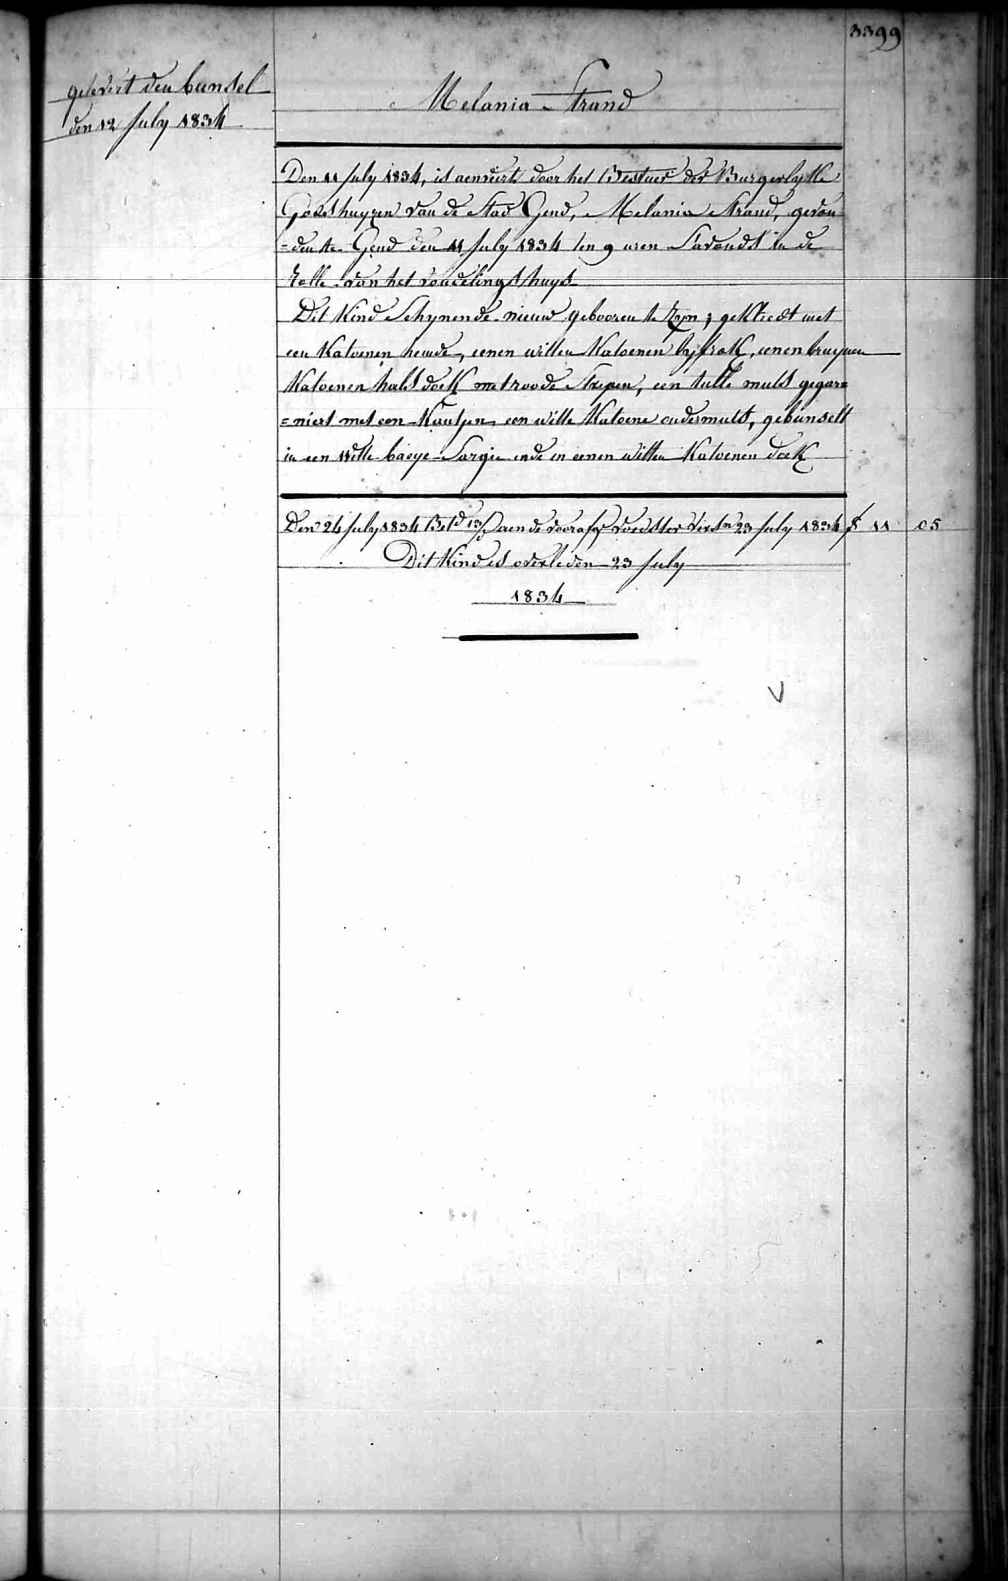 3399
gelevert den bunsel
den 12 July 1834
Melania Strand
Den 11 July 1834, is aenveirt door het Bestuer der Burgerlyke
Godshuyzen van de Stad Gend, Melania Strand, gevon
=den te Gend den 11 July 1834 ten 9 uren Savonds in de
Rolle van het vondelingshuys
Dit Kind Schynende nieuw gebooren te Zyn, gekleedt met
een Katoenen hemde, eenen witten Katoenen lyfrok, eenen bruynen
Katoenen halsdoek met roode Strepen, een tulle muts gegar=
=niert met een Kantjen, een witte Katoene ondermuts, gebunselt
in een witte baeye Sargie ende in eenen witten Katoenen doek
Den 24 July 1834 Bet.d 13 aen de voorafg voedster 23 July 1834 f 11 05
Dit Kind is overleden 23 July
1834